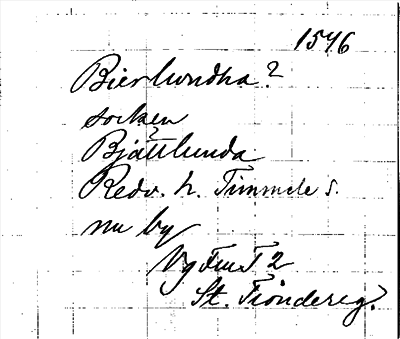 1546
Bierlundha?
socken
Bjättlunda
Redv. h. Timmele s.
nu by
Vg FmT 2
St. Tiondereg.